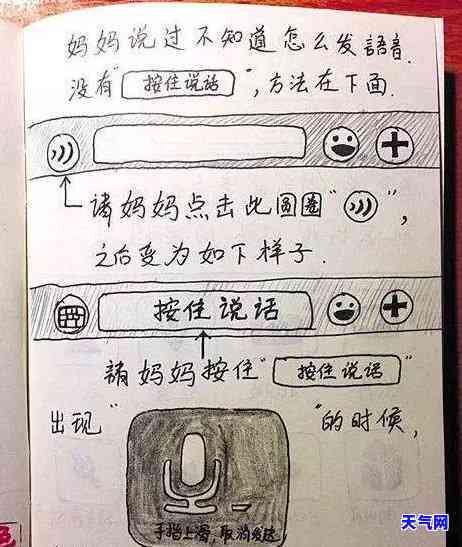 妈妈说过不知道怎么发語音.
没有"按住说话",方法在下面.
請妈妈点击此圆圈"",
之后变为如下样子.
按住说话
請妈妈按住"按住说话"
出现""的时候,
手指上滑,取消发送
天气网